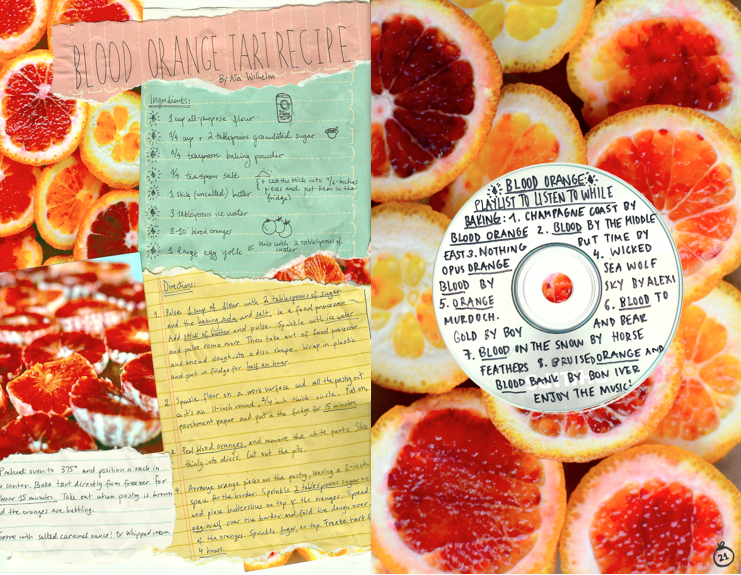 BLOOD ORANGE TART RECIPE
By Asia Wilhelm
Ingredients:
1 cup all-purpose flour
3/4 cup + 2 tablespoons granulated sugar
teaspoon baking powder
1/4 teaspoon salt
1 stick (unsalted) butter
{+ cut the stick into 1/2-inches
pieces and put them in the
fridge}
3 tablespoons ice water
8-10 blood oranges
1 large egg yolk
mix with 2 tablespoons of
water
Directions:
1. Pulse 1 cup of flour with 2 tablespoons of sugar
and the baking soda and salt in a food processor.
Add stick of butter and pulse. Sprinkle with ice water
and pulse some more. Then take out of food processor
and knead dough into a disc shape. Wrap in plastic
and put in fridge for half an hour.
2. Sprinkle flour on a work surface and roll the pastry out
11-inch round, 3/4 inch thick circle. Put on
parchment paper and put in the fridge for 15 minutes.
Peel blood oranges and remove the white parts. Slice
thinly into discs. Cut out the pits.
4. Arrange orange pieces on the pastry, leaving a 2-inch
space for the border. Sprinkle 2 tablespoons sugar
and place butter slices on top of the oranges. Spread
egg wash over the border and fold the dough over
of the oranges. Sprinkle sugar on top. Freeze tart for
4 hours.
Preheat oven to 375° and position a rack in
center. Bake tart directly from freezer for
hour 15 minutes. Take out when pastry is brown
and the oranges are bubbling.
serve with salted caramel sauce! Or whipped cream
BLOOD ORANGE:
PLAYLIST TO LISTEN TO WHILE
BAKING: 1. CHAMPAGNE COAST BY
BLOOD ORANGE 2. BLOOD BY THE MIDDLE
EAST 3. NOTHING BUT TIME BY
OPUS ORANGE 4. WICKED
BLOOD BY SEA WOLF
5. ORANGE SKY BY ALEXI
MURDOCH. 6. BLOOD TO
GOLD BY BOY AND BEAR
7. BLOOD ON THE SNOW BY HORSE
FEATHERS 8. BRUISED ORANGE AND
BLOOD BANK BY BON IVER
ENJOY THE MUSIC!
21